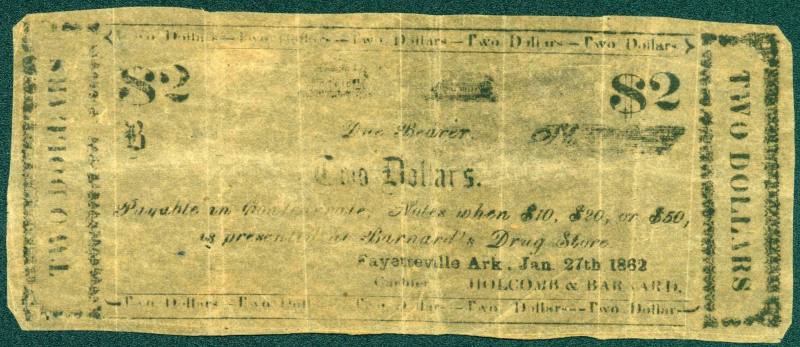 Two Dollars – Two Dollars – Two Dollars – Two Dollars – Two Dollars
TWO DOLLARS
$2
$2
TWO DOLLARS
B
Due Bearer
Two Dollars.
Payable in Confederate, Notes when $10, $20, or $50,
is presented at Barnard's Drug Store
Fayetteville Ark. Jan. 27th 1862
Cashier HOLCOMB & BARNARD.
Two Dollars – Two Dollars – Two Dollars – Two Dollars – Two Dollars